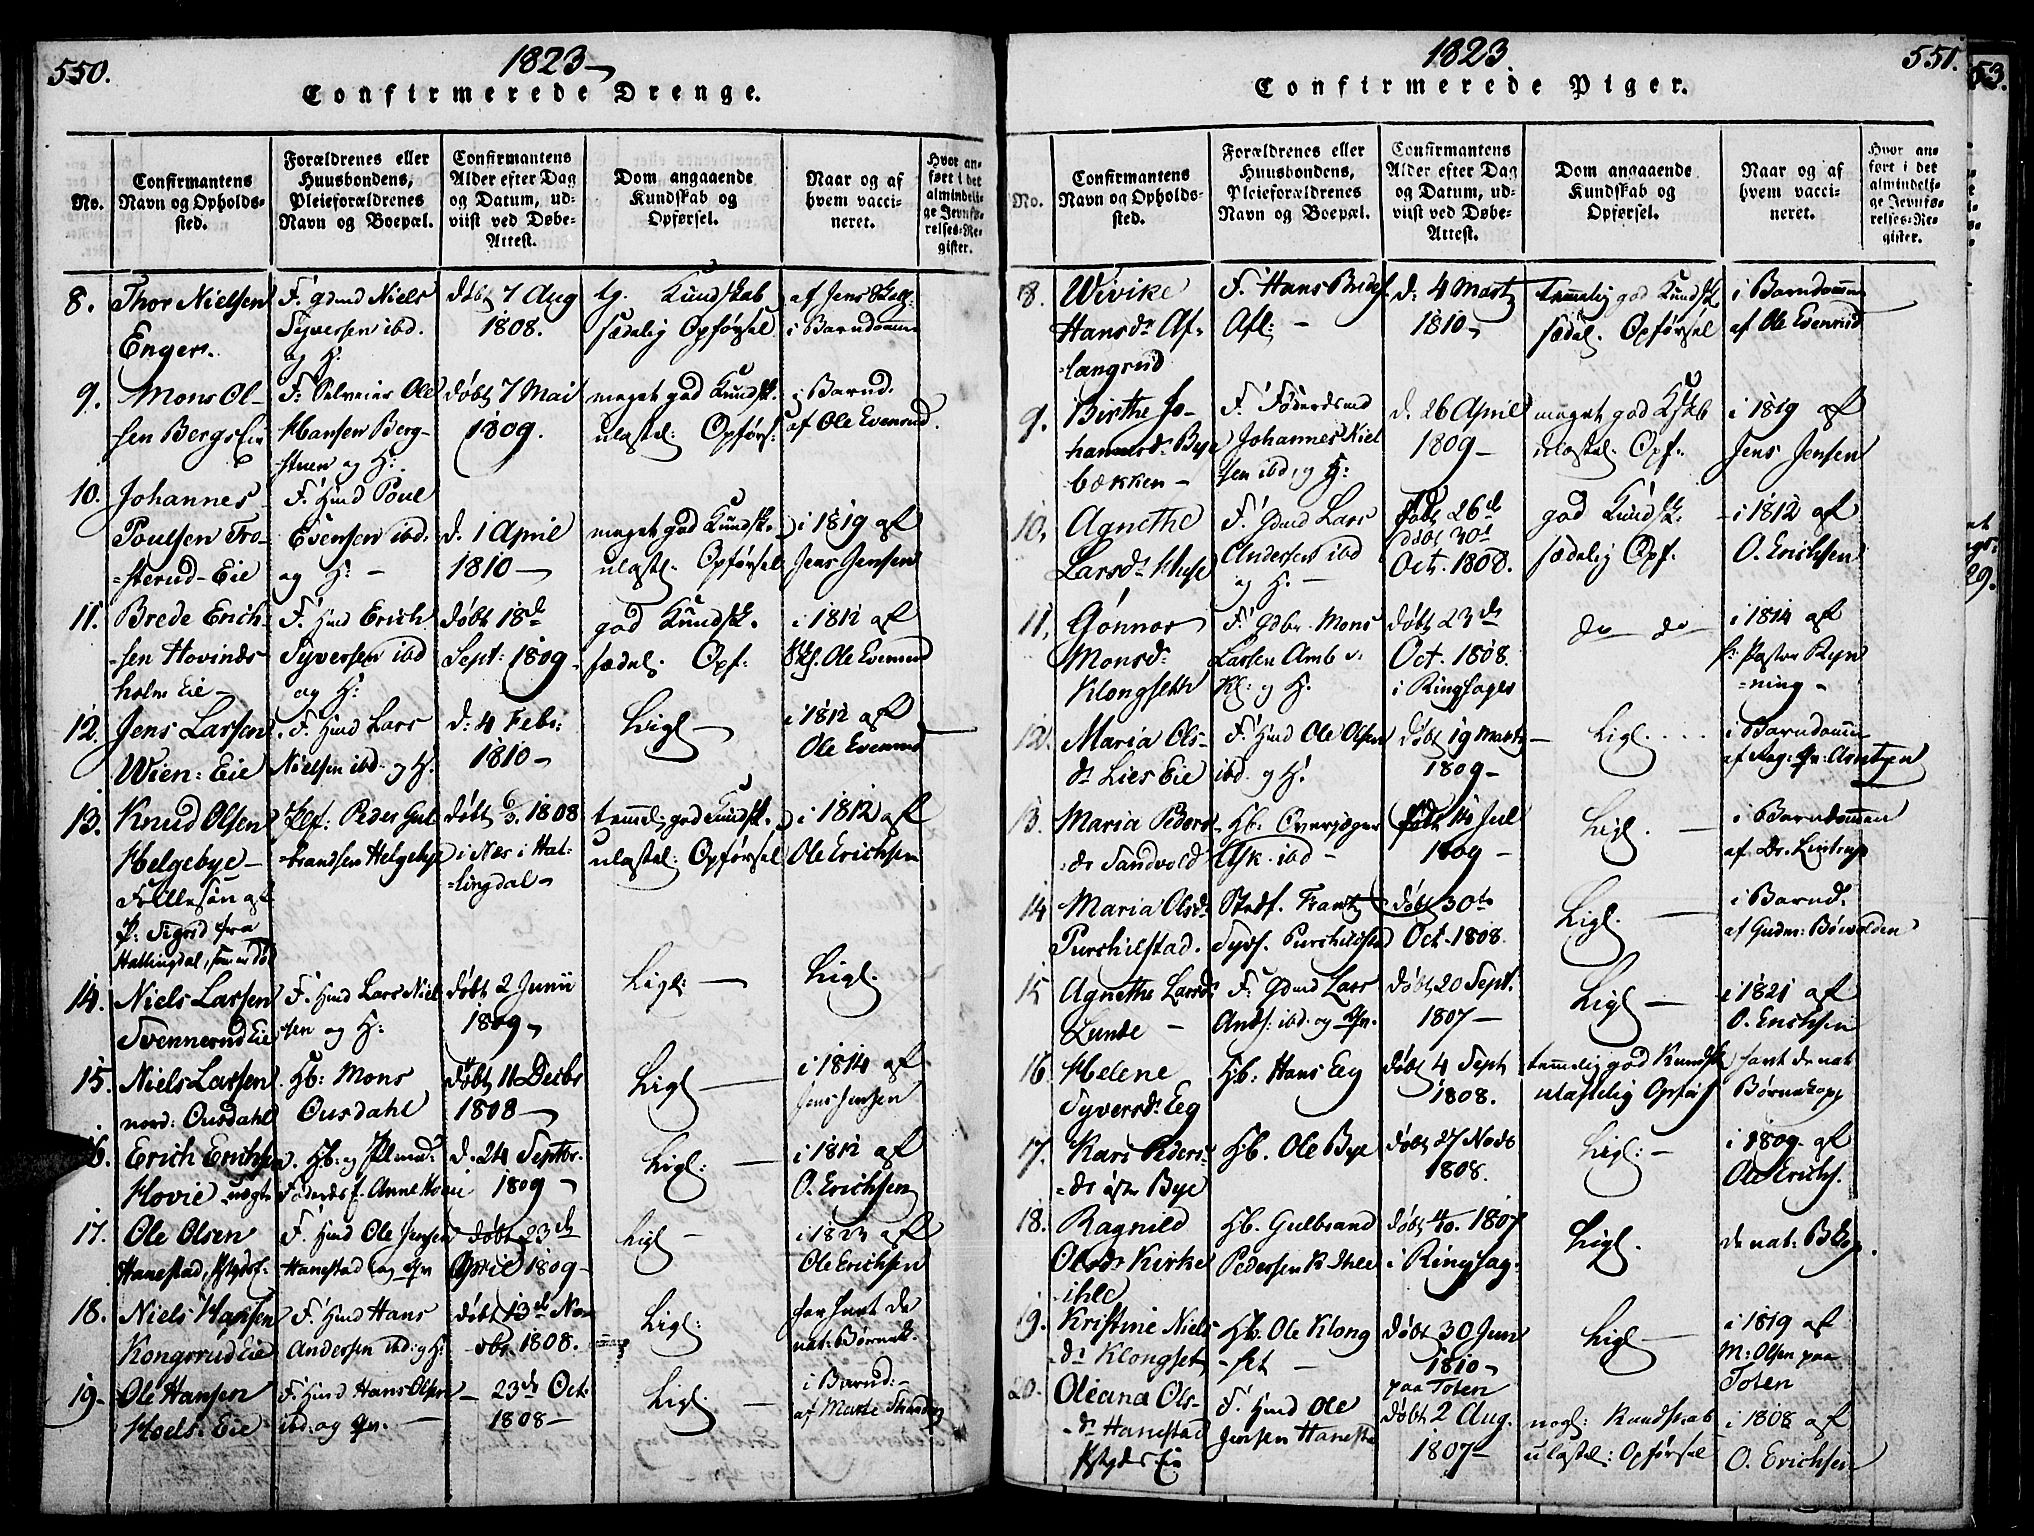 550.
1823
Confirmerede Drenge.
No.
Confirmantens
Navn og Opholds-
sted.
Forældrenes eller
Huusbondens,
Pleieforældrenes
Navn og Boepæl.
Confirmantens
Alder efter Dag
og Datum, ud-
viist ved Døbe-
Attest.
Dom angaaende
Kundskab og
Opførsel.
Naar og af
hvem vacci-
neret.
Hvor an-
ført i det
almindeli-
ge Jevnfø-
relses-Re-
gister.
8. Thor Nielsen
Enger.
F. Gdmd Niels
Syversen ibd.
og H:
døbt 7 Aug
1808.
tg. Kundskab
sædelig Opførsel
af Jens
i Barndomm
9. Mons Ol-
sen Bergs
F. Selveier Ole
Hansen Berg-
stuen og H:
døbt 7 Mai
1809.
meget god Kundsk.
ulastel: Opførs:
i Barnd.
af Ole Evenrud
10. Johannes
Poulsen Tro-
=sterud-Eie
F. Hmd Poul
Evensen ibd.
og H:
d. 1 April
1810
meget god Kundsk.
ulastel. Opførsel
i 1819 af
Jens Jensen
11. Brede Erich-
sen Hovinds-
holm Eie
F. Hmd Erich
Syversen ibd
og H:
døbt 18de
Sept: 1809
god Kundsk.
sædel. Opf:
i 1812 af
Ole Evenrud
12. Jens Larsen
Wien: Eie
F. Hmd Lars
Nielsen ibd. og H.
d: 4 Febr:
1810
Ligl
i 1812 af
Ole Evenrud
13. Knud Olsen
Helgebye
af
P: Sigrid fra
Hallingdal, som er død
Plf: Peder Gul-
brandsen Helgebye
døbt 6/3. 1808
i Næs i Hal-
=lingdal
temmel: god Kundsk.
ulastel: Opførsel
i 1812 af
Ole Erichsen
14. Niels Larsen
Svennerud Eie
F. Hmd Lars Niel-
sen og H:
døbt 2 Junii
1809
Ligl:
Ligl.
15. Niels Larsen
nord: Ousdahl
Hb: Mons
Ousdahl
døbt 11 Decbr
1808
Ligl
i 1814 af
Jens Jensen
16. Erich Erichsen
Hovie
Hb: og
Anne Hovie
d. 24 Septbr.
1809
Ligl:
i 1812 af
O. Erichsen
17. Ole Olsen
Hanestad,
F. Hmd Ole Jensen
Hanestad og
døbt 23de
April 1809
Ligl
i 1823 af
Ole Erichsen
18. Niels Hansen
Kongsrud Eie
F. Hmd Hans
Andersen ibd: og H:
døbt 13de No-
vbr. 1808.
Ligl:
har havt de
nat: Børnek.
19. Ole Hansen
Hoels: Eie
F. Hmd Hans Olsen
ibd: og
23de Oct:
1808
Ligl.
i Barnd:
af Marte
1823
551.
Confirmerede Piger.
No.
Confirmantens
Navn og Opholds-
sted.
Forældrenes eller
Huusbondens,
Pleieforældrenes
Navn og Boepæl.
Confirmantens
Alder efter Dag
og Datum, ud-
viist ved Døbe-
Attest.
Dom angaaende
Kundskab og
Opførsel.
Naar og af
hvem vacci-
neret.
Hvor an-
ført i det
almindeli-
ge Jevnfø-
relses-Re-
gister.
8. Wivike
Hansdr Af-
=langrud
F. Hans
Afl:
d: 4 Martz
1810
temmelig god Kundsk
sædel. Opførsel
i Barndomm
af Ole Evenrud
9. Birthe Jo-
hannesdr. Bye
bækken
F. Føderdsmd
Johannes Niel
sen ibd. og H:
d. 26 April
1809
meget god
ulastel. Opf.
i 1819 af
Jens Jensen
10. Agnethe
Larsdr.
F. Gdmd Lars
Andersen ibd
og H.
født 26de
døbt 30te
Octr. 1808.
god Kundsk.
sædelig Opf.
i 1812 af
O. Erichsen
11. Gonnor
Monsdr.
Klongseth
F. Gdbr. Mons
Larsen
Kl: og H.
døbt 23de
Oct. 1808.
i Ringsager
do do
i 1814 af
Pastor Ryn
=ning
12. Maria Ols-
dr Lies Eie
F. Hmd Ole Olsen
ibd. og H.
døbt 19 Martz
1809
Ligl.
i Barndomm
af
13. Maria Peders
dr Sandvold
Hb. Overjæger
Ask. ibd
født 14 Jul
1809
Ligl.
i Barndommen
af Dr.
14 Maria Olsdr
Purchilstad.
Stedf. Frantz
Syvs. Purchilsta
døbt 30te
Oct. 1808.
Ligl.
i Barnd.
af Gudm:
15 Agnethe Larsdr
Lunde
F. Gdmd Lars
Ands: ibd. og
døbt 20 Sept.
1807
Ligl
i 1821 af
O. Erichsen
16 Helene
Syversdr. Eeg
Hb: Hans Eeg
døbt 4 Sept
1808.
temmelig god Kundsk
ulastelig Opførs
havt de nat
Børnekopp
17. Kari Peders-
=dr Bye
Hb. Ole Bye
døbt 27 Novb
1808.
Ligl:
i 1809 af
Ole Erichs.
18. Ragnild
Olsdr Kirke
ihle
Hb. Gulbrand
Pedersen K Ihle
døbt 1807
i Ringsag.
Ligl.
de nat: B
19. Kristine Niels
dr Klongset
Hb: Ole Klong
set
døbt 30 Juni
1810
paa Toten
Ligl
i 1819 af
M: Olsen paa
Toten
20. Oleana Ols-
dr Hanestad
F. Hmd Ole
Jensen Hanesta
døbt 2 Aug.
1807
nogl: Kundskab
ulastel: Opførsel
i 1808 af
O. Erichsen
53.
29.